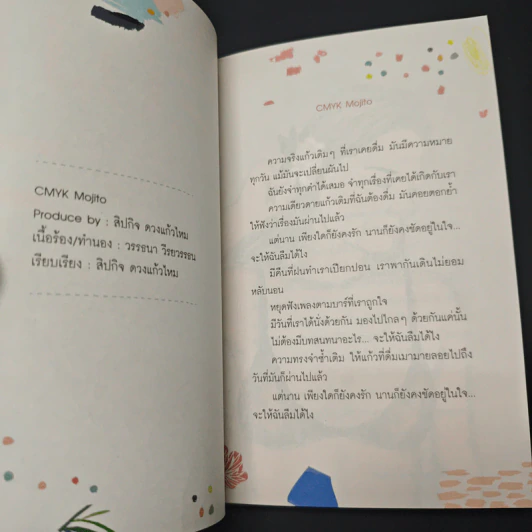 CMYK Mojito
Produce by : สิปกิจ ดวงแก้วไหม
เนื้อร้อง/ทำนอง : วรรธนา วีรยวรรธน
เรียบเรียง : สิปกิจ ดวงแก้วไหม
CMYK Mojito
ความจริงแก้วเดิมๆ ที่เราเคยดื่ม มันมีความหมาย
ทุกวัน แม้มันจะเปลี่ยนผันไป
ฉันยังจำทุกคำได้เสมอ จำทุกเรื่องที่เคยได้เกิดกับเรา
ความเดียวดายแก้วเดิมที่ฉันต้องดื่ม มันคอยตอกย้ำ
ให้ฟังว่าเรื่องมันผ่านไปแล้ว
แต่นาน เพียงใดก็ยังคงรัก นานก็ยังคงชัดอยู่ในใจ...
จะให้ฉันลืมได้ไง
มีคืนที่ฝนทำเราเปียกปอน เราพากันเดินไม่ยอม
หลับนอน
หยุดฟังเพลงตามบาร์ที่เราถูกใจ
มีวันที่เราได้นั่งด้วยกัน มองไปไกลๆ ด้วยกันแค่นั้น
ไม่ต้องมีบทสนทนาอะไร... จะให้ฉันลืมได้ไง
ความทรงจำซ้ำเดิม ให้แก้วที่ดื่มเมามายลอยไปถึง
วันที่มันก็ผ่านไปแล้ว
แต่นาน เพียงใดก็ยังคงรัก นานก็ยังคงชัดอยู่ในใจ...
จะให้ฉันลืมได้ไง